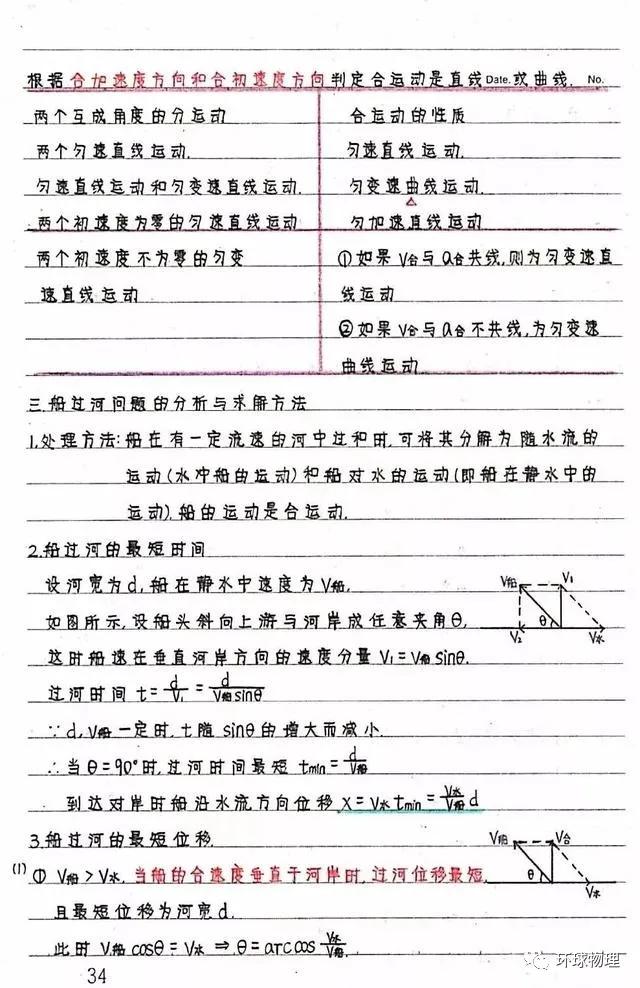 根据合加速度方向和合初速度方向判定合运动是直线Date.或曲线. No.
两个互成角度的分运动
合运动的性质
两个匀速直线运动.
匀速直线运动.
匀速直线运动和匀变速直线运动.
匀变速曲线运动.
两个初速度为零的匀速直线运动
匀加速直线运动
两个初速度不为零的匀变
速直线运动
①如果V合与a合共线,则为匀变速直
线运动
②如果V合与a合不共线,为匀变速
曲线运动.
三.船过河问题的分析与求解方法
1.处理方法:船在有一定流速的河中过和时,可将其分解为随水流的
运动(水冲船的运动)和船对水的运动(即船在静水中的
运动).船的运动是合运动.
2.船过河的最短时间
设河宽为d,船在静水中速度为V船,
如图所示,设船头斜向上游与河岸成任意夹角θ,
这时船速在垂直河岸方向的速度分量V₁=V船sinθ.
V船 V₁
θ
V₂ V水
过河时间 t=d/V₁=d/V船sinθ
∵d,V船一定时,t随sinθ的增大而减小.
∴当θ=90°时,过河时间最短 tmin=d/V船
到达对岸时船沿水流方向位移X=V水tmin=V水/V船 d
3.船过河的最短位移.
(1) ① V船>V水.当船的合速度垂直于河岸时,过河位移最短.
V船 V合
θ
V水
且最短位移为河宽d.
此时V船cosθ=V水⇒.θ=arccos V水/V船.
34
环球物理